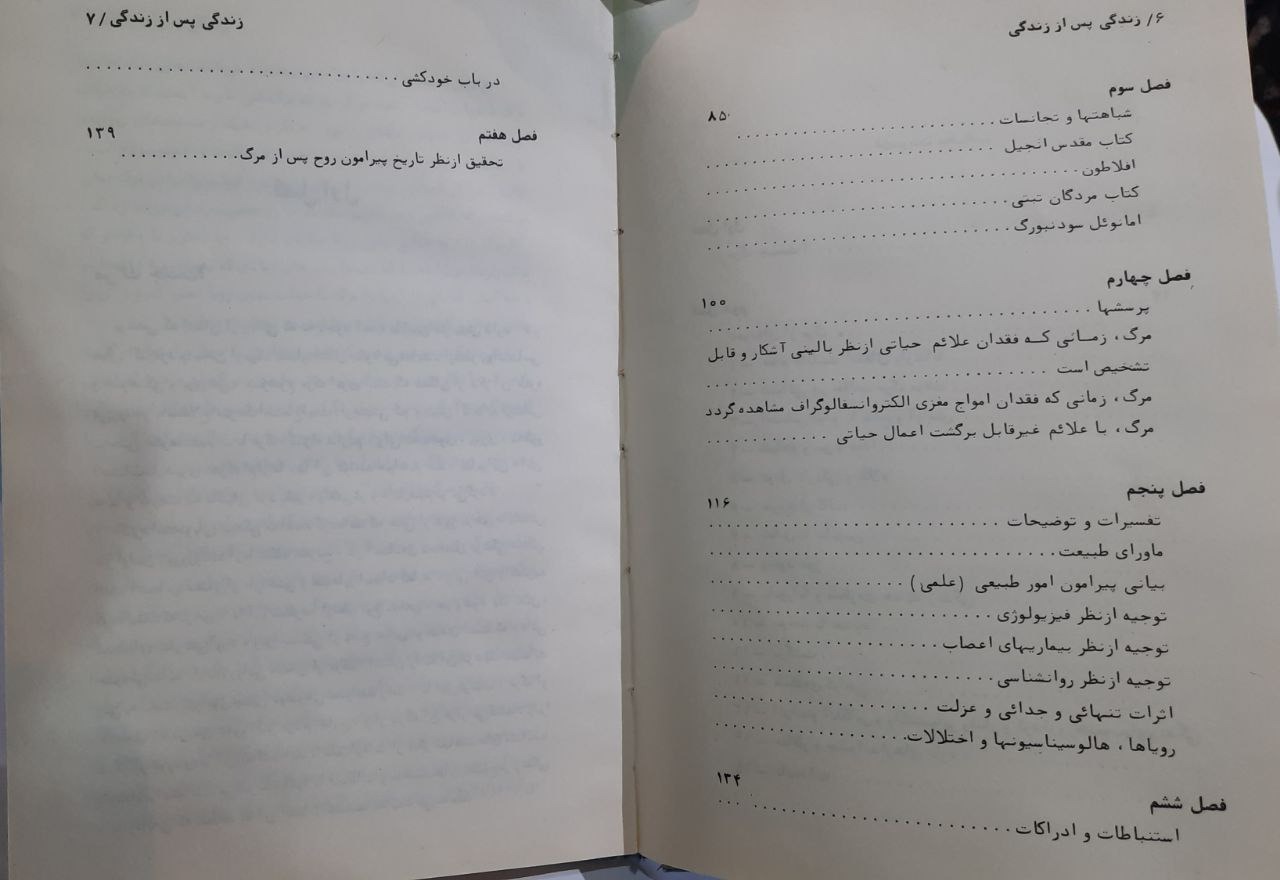 ۶/ زندگی پس از زندگی
فصل سوم
۸۵
شباهتها و تجانسات
کتاب مقدس انجیل
افلاطون
کتاب مردگان تبتی
امانوئل سودنبورگ
فصل چهارم
۱۰۰
پرسشها
مرگ، زمانی که فقدان علائم حیاتی ازنظر بالینی آشکار و قابل
تشخیص است
مرگ، زمانی که فقدان امواج مغزی الکتروانسفالوگراف مشاهده گردد
مرگ، با علائم غیرقابل برگشت اعمال حیاتی
فصل پنجم
۱۱۶
تفسیرات و توضیحات
ماورای طبیعت
بیانی پیرامون امور طبیعی (علمی)
توجیه ازنظر فیزیولوژی
توجیه ازنظر بیماریهای اعصاب
توجیه ازنظر روانشناسی
اثرات تنهائی و جدائی و عزلت
رویاها، هالوسیناسیونها و اختلالات
فصل ششم
۱۳۴
استنباطات و ادراکات
زندگی پس از زندگی / ۷
در باب خودکشی
فصل هفتم
۱۳۹
تحقیق ازنظر تاریخ پیرامون روح پس از مرگ